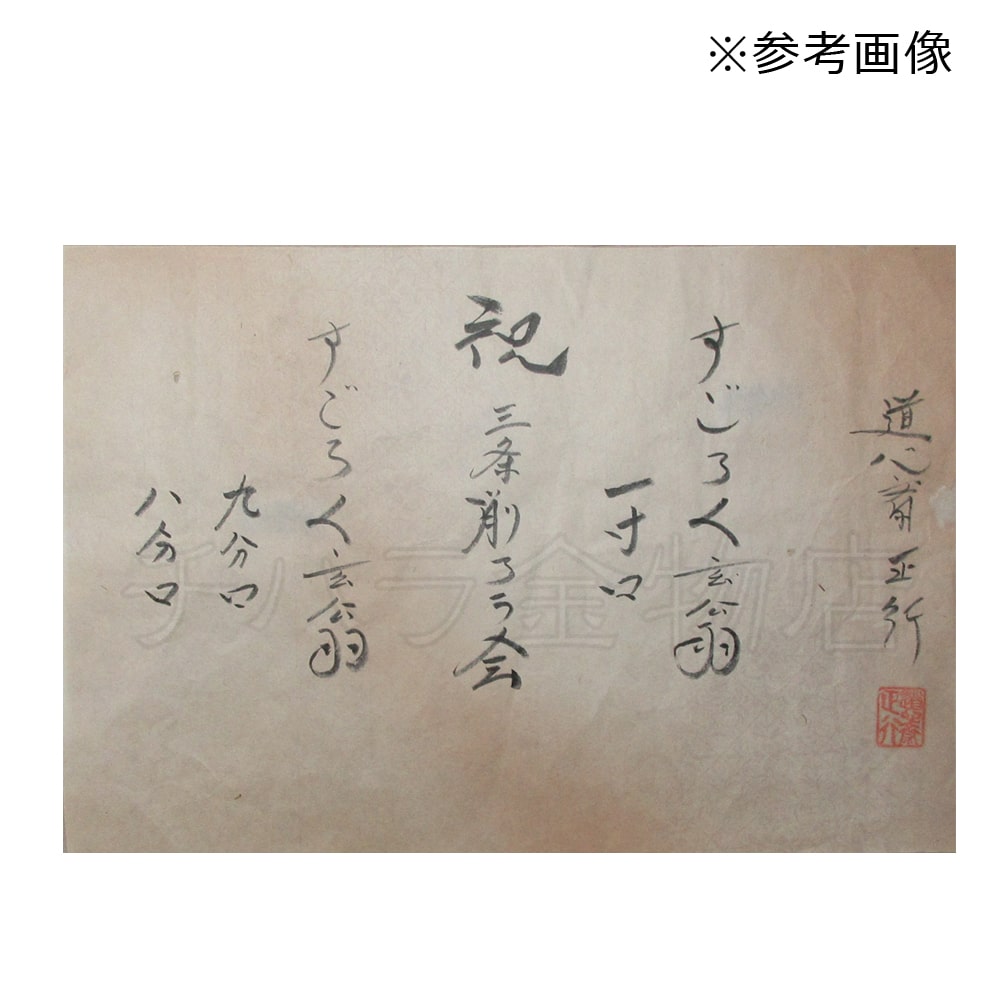 ※参考画像
道心斎正行
すごろく玄翁
一寸口
祝 三条削ろう会
すごろく玄翁
九分口
八分口
チハラ金物店